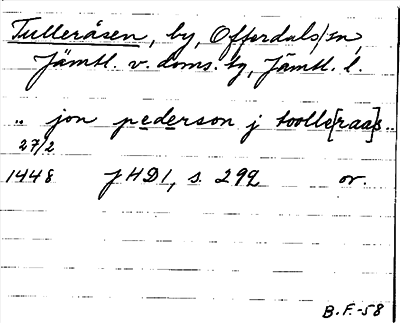 Tulleråsen, by, Offerdals sn,
Jämtl. v. doms. tg, Jämtl. l.
.. jon pederson j toolle[raa]s ..
27/2
1448 JHD1, s. 292 or.
B.F.-58